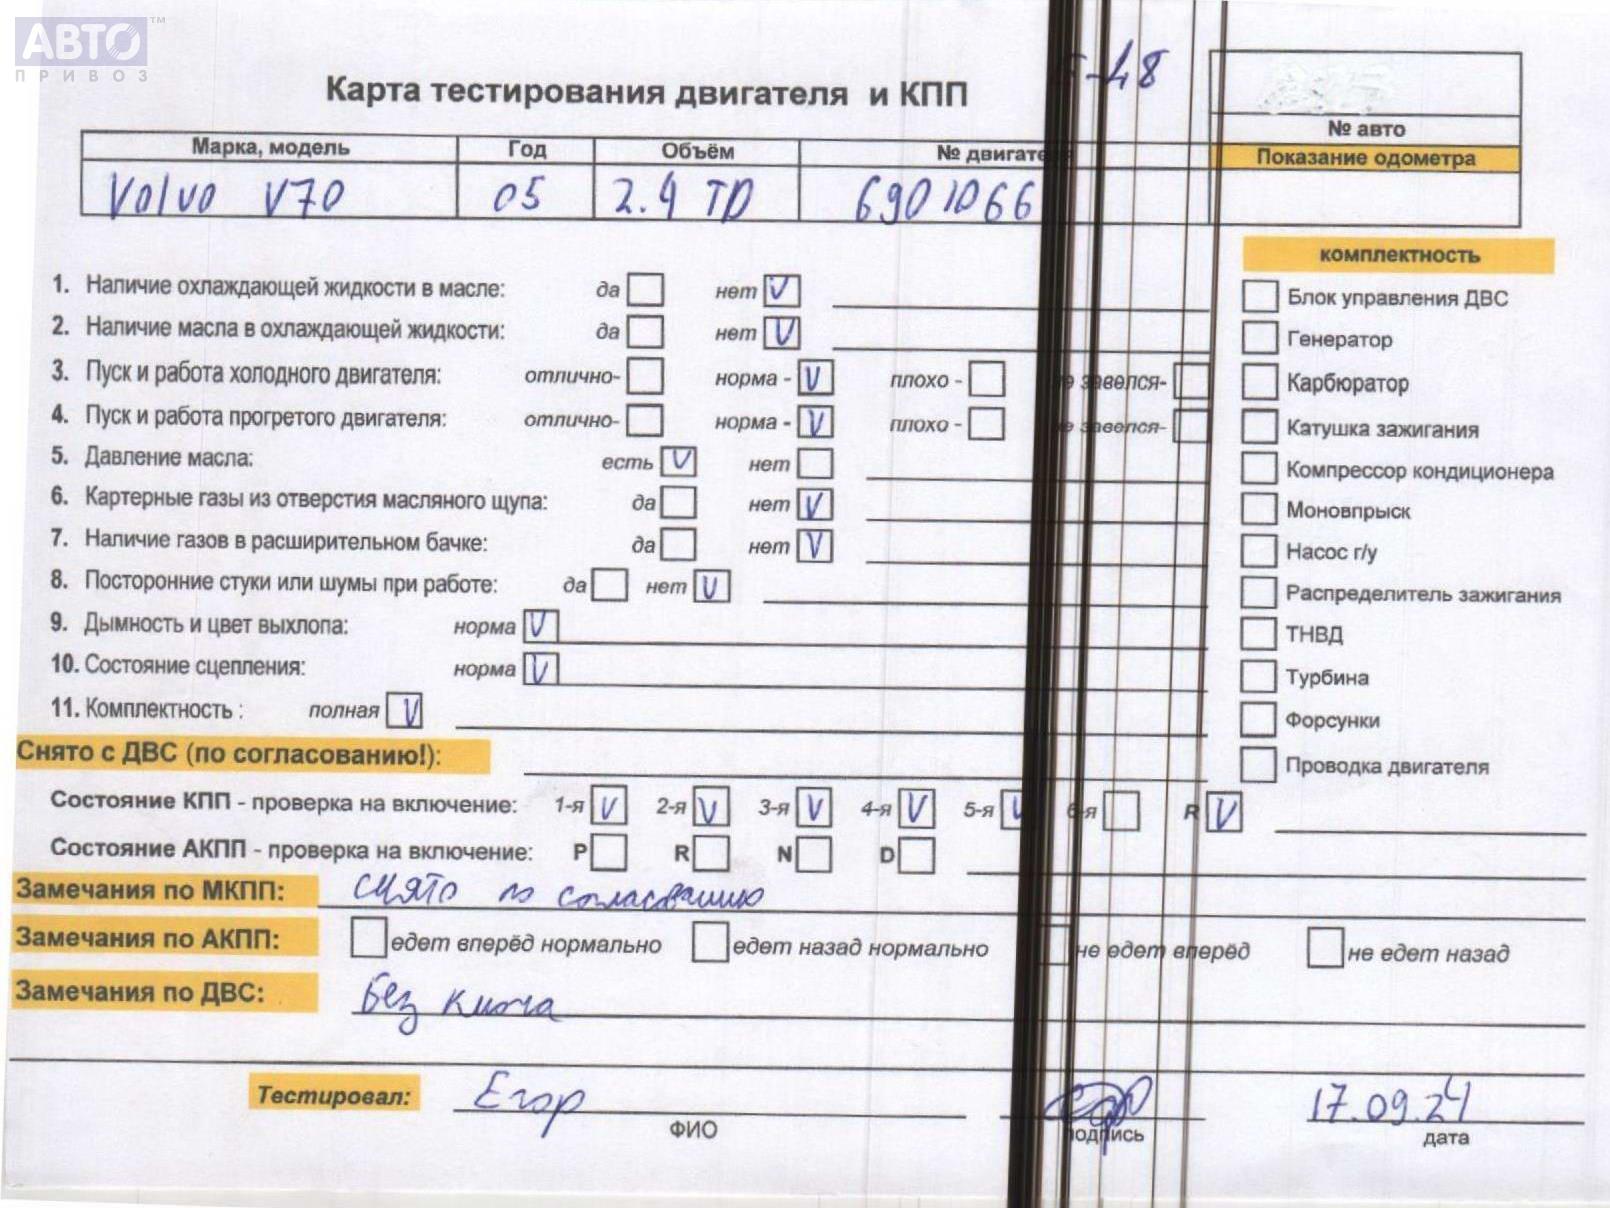 АВТО™
ПРИВОЗ
Карта тестирования двигателя и КПП
-48
№ авто
Марка, модель Год Объём № двигате Показание одометра
Volvo V70 05 2.4 TD 6901066
комплектность
1. Наличие охлаждающей жидкости в масле: да нет V
Блок управления ДВС
2. Наличие масла в охлаждающей жидкости: да нет V
Генератор
3. Пуск и работа холодного двигателя: отлично- норма - V плохо - не завелся-
Карбюратор
4. Пуск и работа прогретого двигателя: отлично- норма - V плохо - не завелся-
Катушка зажигания
5. Давление масла: есть V нет
Компрессор кондиционера
6. Картерные газы из отверстия масляного щупа: да нет V
Моновпрыск
7. Наличие газов в расширительном бачке: да нет V
Насос г/у
8. Посторонние стуки или шумы при работе: да нет V
Распределитель зажигания
9. Дымность и цвет выхлопа: норма V
ТНВД
10. Состояние сцепления: норма V
Турбина
11. Комплектность : полная V
Форсунки
Снято с ДВС (по согласованию!):
Проводка двигателя
Состояние КПП - проверка на включение: 1-я V 2-я V 3-я V 4-я V 5-я V 6-я R V
Состояние АКПП - проверка на включение: P R N D
Замечания по МКПП: снято по согласованию
Замечания по АКПП: едет вперёд нормально едет назад нормально не едет вперёд не едет назад
Замечания по ДВС: Без ключа
Тестировал: Егор 17.09.24
ФИО подпись дата